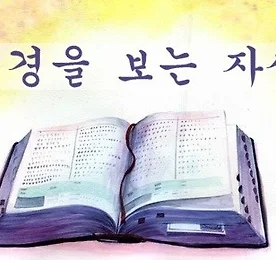 경을 보는 자